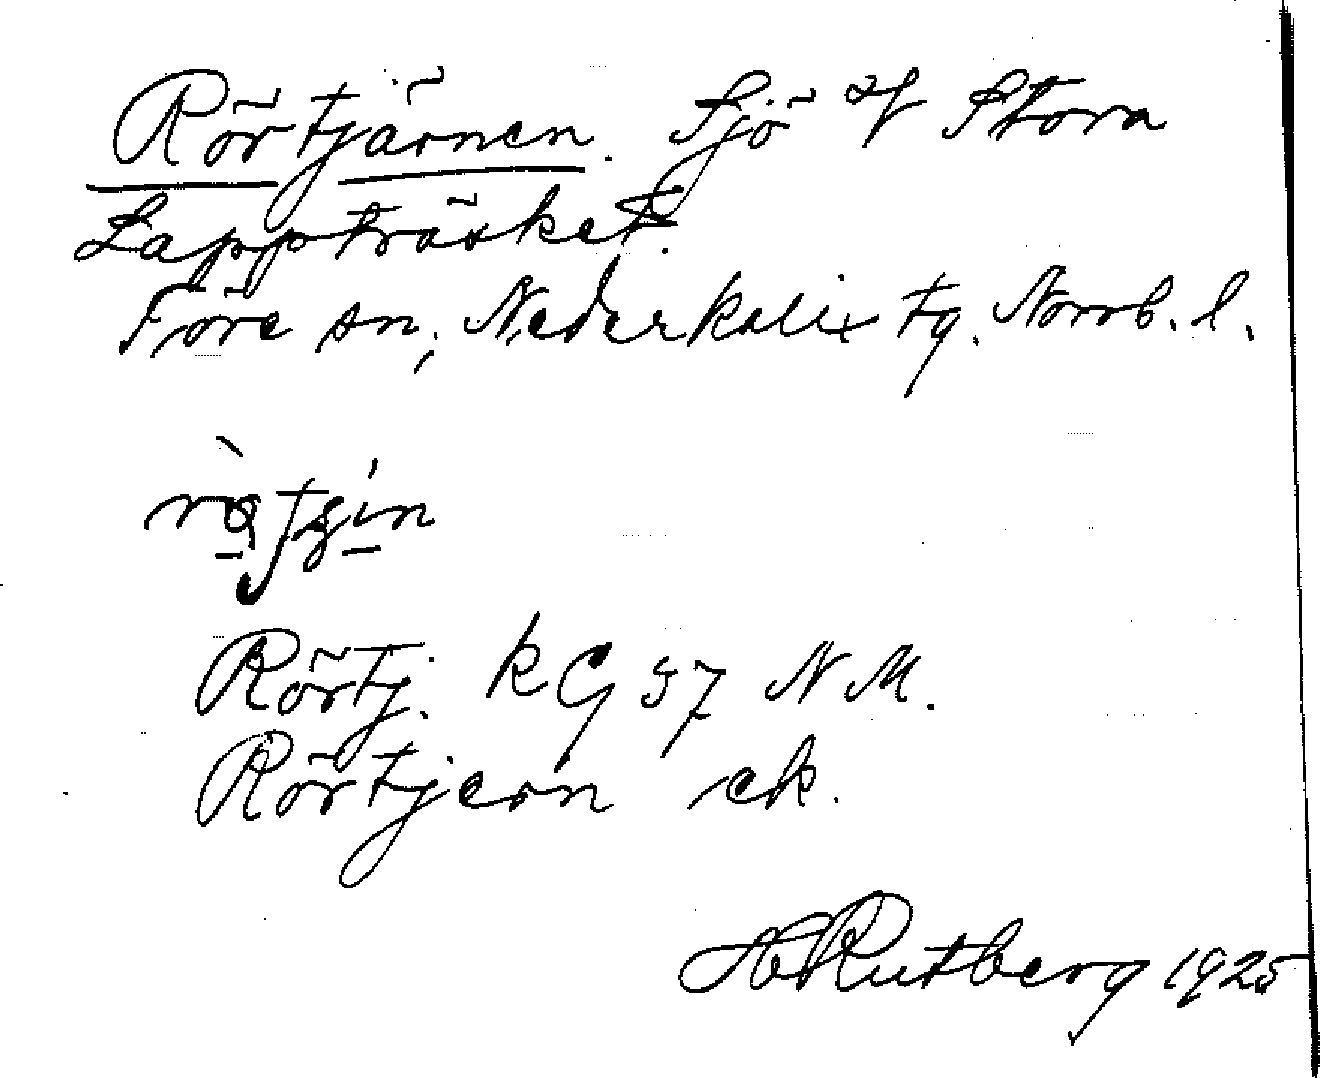 Rörtjärnen. Sjö V Stora
Lappträsket.
Töre sn, Nederkalix tg. Norrb. l.
Rörtj. kG 57 NM.
Rörtjern ek.
H Rutberg 1925